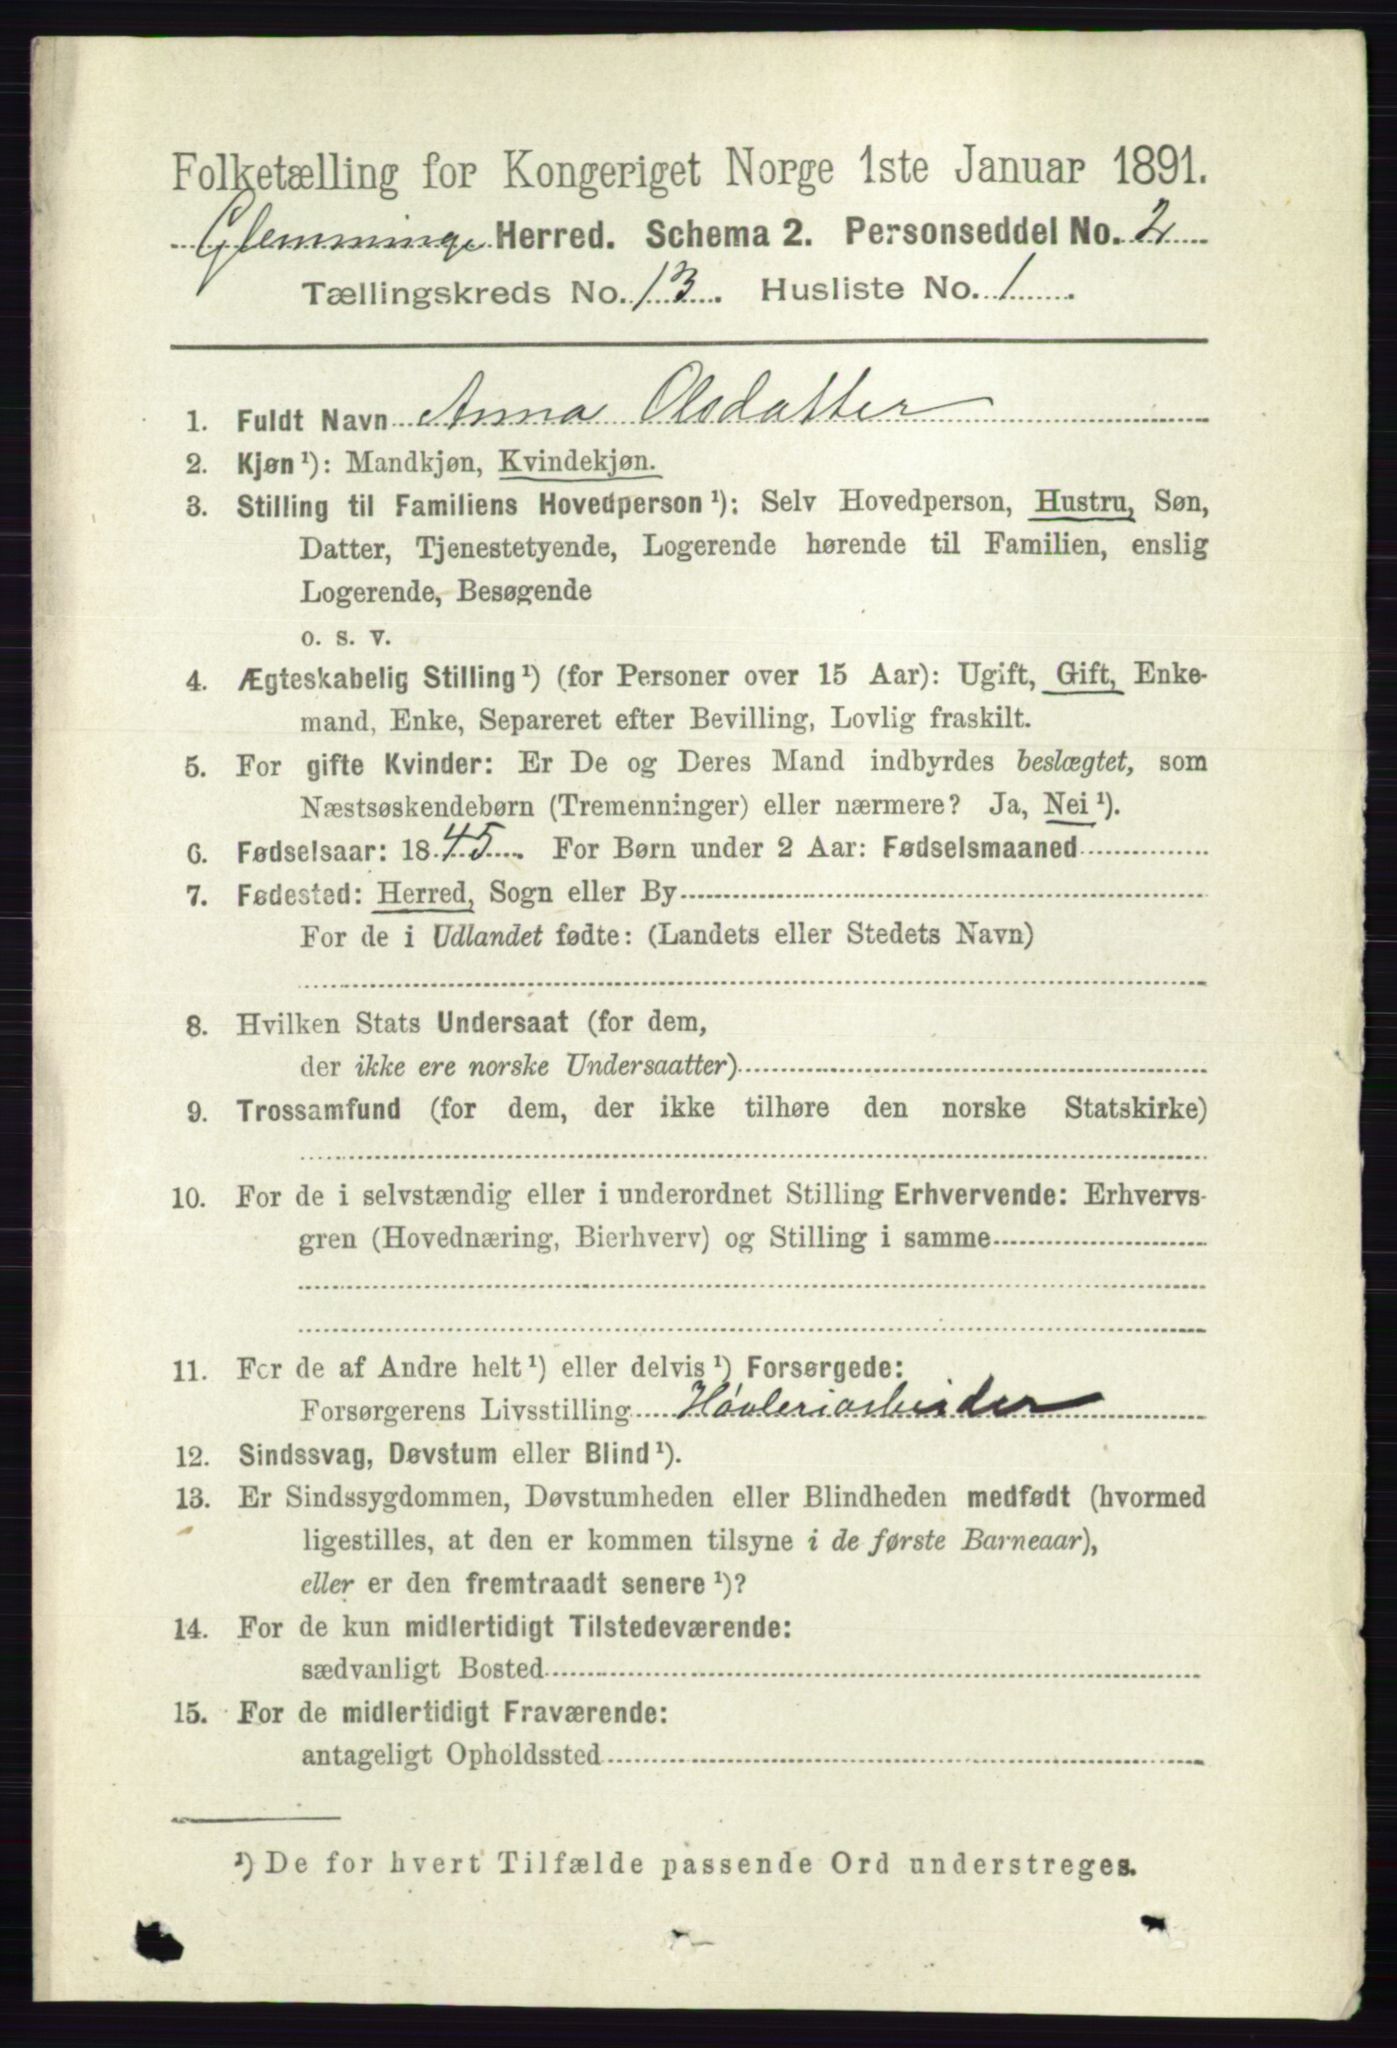 Folketælling for Kongeriget Norge 1ste Januar 1891.
Glemminge Herred. Schema 2. Personseddel No. 2
Tællingskreds No. 13. Husliste No. 1
1. Fuldt Navn Anna Olsdatter
2. Kjøn ¹): Mandkjøn, Kvindekjøn.
3. Stilling til Familiens Hovedperson ¹): Selv Hovedperson, Hustru, Søn,
Datter, Tjenestetyende, Logerende hørende til Familien, enslig
Logerende, Besøgende
o. s. v.
4. Ægteskabelig Stilling ¹) (for Personer over 15 Aar): Ugift, Gift, Enke-
mand, Enke, Separeret efter Bevilling, Lovlig fraskilt.
5. For gifte Kvinder: Er De og Deres Mand indbyrdes beslægtet, som
Næstsøskendebørn (Tremenninger) eller nærmere? Ja, Nei ¹).
6. Fødselsaar: 1845. For Børn under 2 Aar: Fødselsmaaned
7. Fødested: Herred, Sogn eller By
For de i Udlandet fødte: (Landets eller Stedets Navn)
8. Hvilken Stats Undersaat (for dem,
der ikke ere norske Undersaatter)
9. Trossamfund (for dem, der ikke tilhøre den norske Statskirke)
10. For de i selvstændig eller i underordnet Stilling Erhvervende: Erhvervs-
gren (Hovednæring, Bierhverv) og Stilling i samme
11. For de af Andre helt ¹) eller delvis ¹) Forsørgede:
Forsørgerens Livsstilling Høvleriarbeider
12. Sindssvag, Døvstum eller Blind ¹).
13. Er Sindssygdommen, Døvstumheden eller Blindheden medfødt (hvormed
ligestilles, at den er kommen tilsyne i de første Barneaar),
eller er den fremtraadt senere ¹)?
14. For de kun midlertidigt Tilstedeværende:
sædvanligt Bosted
15. For de midlertidigt Fraværende:
antageligt Opholdssted
¹) De for hvert Tilfælde passende Ord understreges.